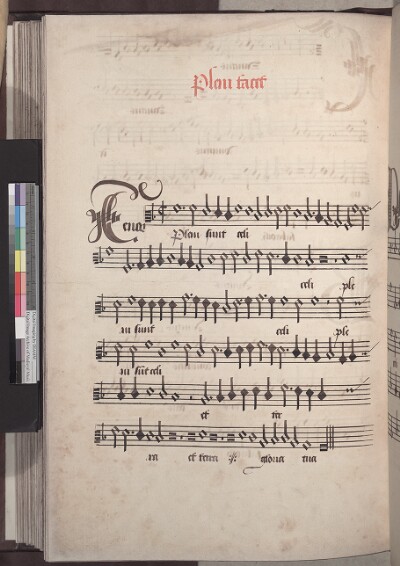 Pleni tacet
Tenor
Pleni sunt celi
celi ple
ni sunt celi ple
ni sunt celi
et ter
ra et terra .ij. gloria tua